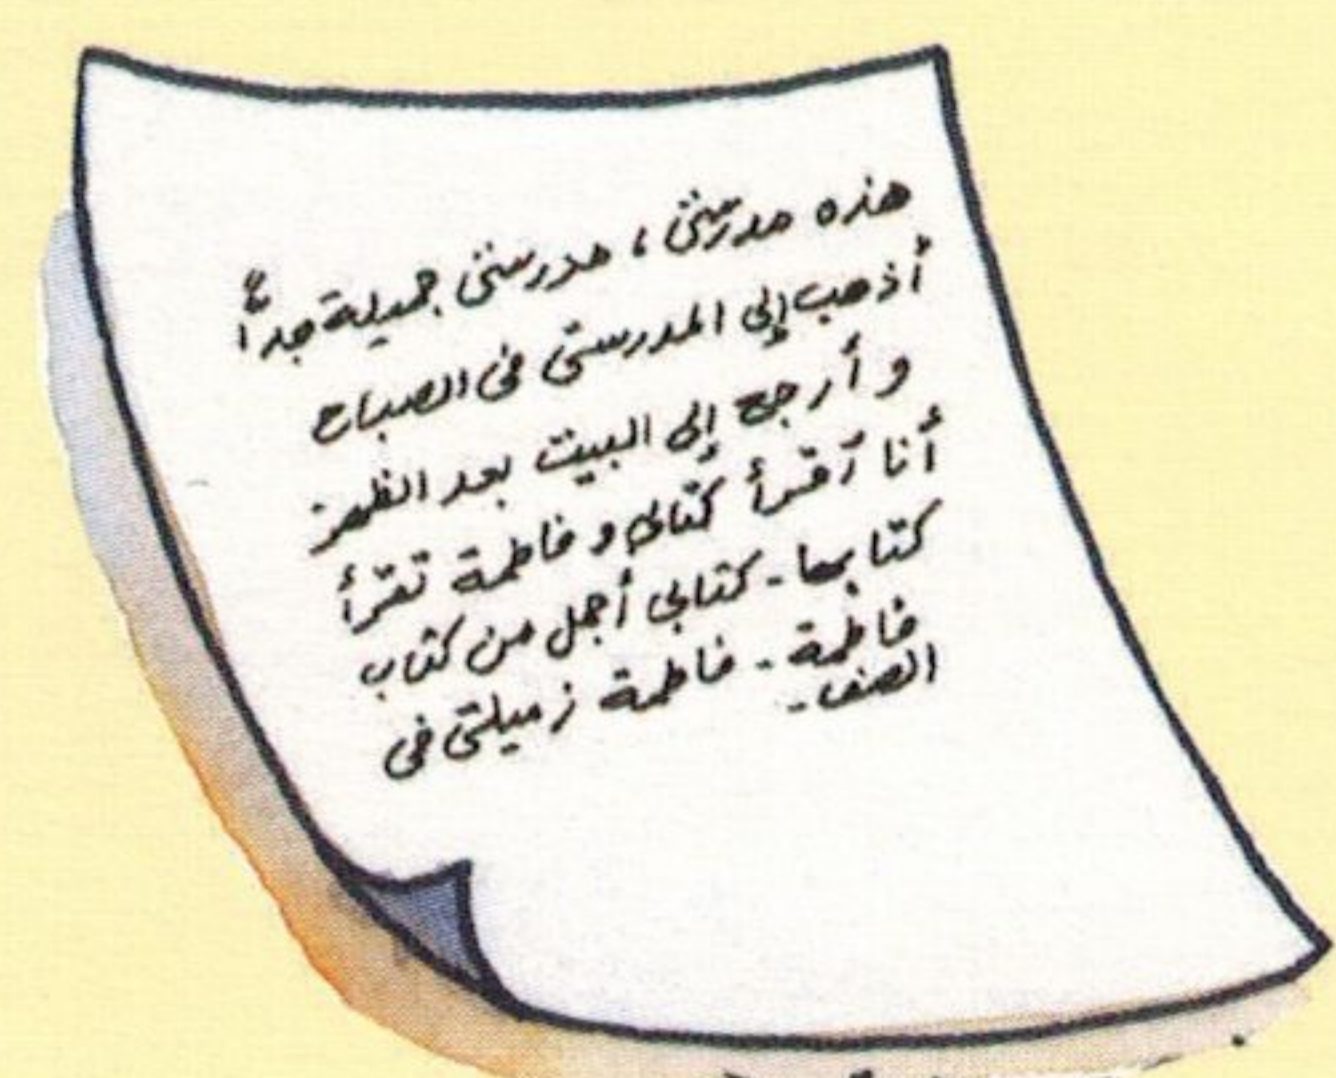 هذه مدرستي، مدرستي جميلة جداً
أذهب إلى المدرستي في الصباح
و أرجع إلى البيت بعد الظهر
أنا أقرأ كتابي و فاطمة تقرأ
كتابها - كتابي أجمل من كتاب
فاطمة - فاطمة زميلتي في
الصف -